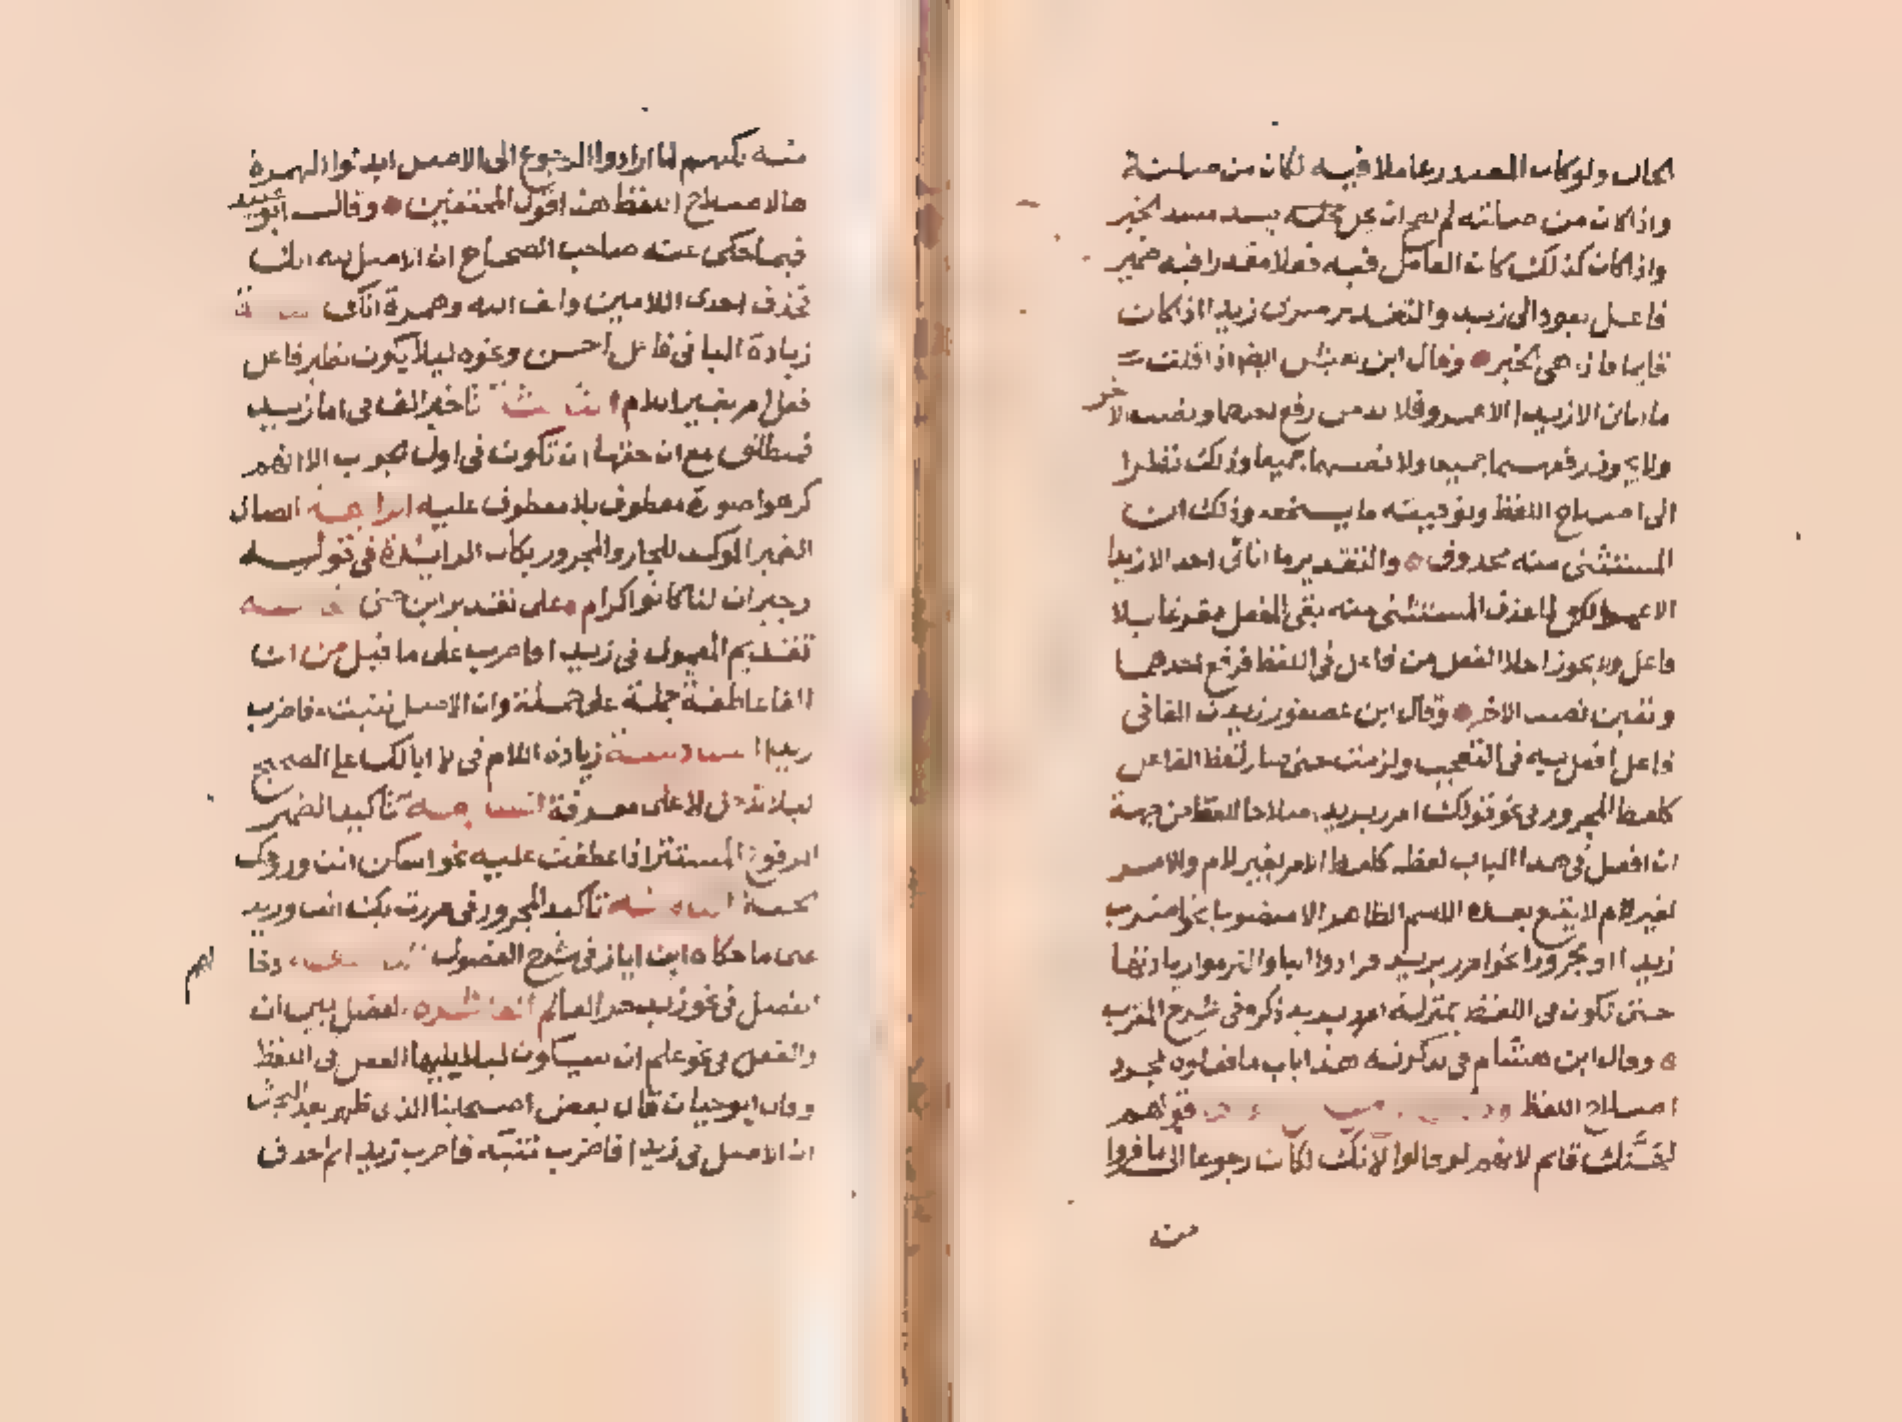 الحال ولو كان المصدر عاملا فيه لكان من صلته
واذا كان من صلته لم يصح ان يسد مسد الخبر
واذا كان كذلك كان العامل فيه فعلا مقدرا فيه ضمير
فاعل يعود الى زيد والتقدير ضربي زيدا اذا كان
قايما هي الخبر وقال ابن يعيش ايضا اذا قلت
ما اتاني الا زيدا الا عمرو فلا بد من رفع احدهما ونصب الاخر
ولا يجوز رفعهما جميعا ولا نصبهما جميعا وذلك نظرا
الى اصلاح اللفظ وتوفيته ما يستحقه وذلك ان
المستثنى منه محذوف والتقدير ما اتاني احد الا زيدا
الا عمرو لكن لما حذف المستثنى منه بقي الفعل مفرغا بلا
فاعل ولا يجوز اخلا الفعل من فاعل في اللفظ فرفع احدهما
وتعين نصب الاخر وقال ابن عصفور زيدت الفا في
فاعل افعل به في التعجب ولزمت حتى صار لفظ الفاعل
كلفظ المجرور في نحو قولك امرر بزيد اصلاحا للفظ من جهة
ان افعل في هذا الباب لفظه كلفظ الامر بغير لام والامر
بغير لام لا يقع بعده الاسم الظاهر الا منصوبا نحو اضرب
زيدا او مجرورا نحو امرر بزيد فزادوا البا والتزموا زيادتها
حتى تكون في اللفظ بمنزلة امرر بزيد ذكره في شرح المقرب
وقال ابن هشام في تذكرته هذا باب ما فعلوه لمجرد
اصلاح اللفظ قولهم
لهنك قائم لانهم لو قالوا لانك لكان رجوعا الى ما فروا
منه
منه لكنهم لما ارادوا الرجوع الى الاصل ابدلوا الهمزة
ها لاصلاح اللفظ هذا قول المحققين وقال ابو عبيد
فيما حكى عنه صاحب الصحاح ان الاصل لله انك
فحذف احدى اللامين والف الله وهمزة انك
زيادة البا في فاعل احسن ونحوه ليلا يكون نظير فاعل
فعل امر بغير اللام الثالثة تاخير الفا في اما زيد
فمنطلق مع ان حقها ان تكون في اول الجواب الا انهم
كرهوا صورة معطوف بلا معطوف عليه الرابعة اتصال
الضمير الموكد للجار والمجرور بكان الزائدة في قوله
وجيران لنا كانوا كرام على تقدير ابن جني خامسة
تقديم المعمول في زيدا فاضرب على ما قيل من ان
الفا عاطفة جملة على جملة وان الاصل تنبه فاضرب
زيدا السادسة زيادة اللام في لا ابا لك على الصحيح
ليلا تدخل لا على معرفة السابعة تأكيد الضمير
المرفوع المستتر اذا عطفت عليه نحو اسكن انت وزوجك
الجنة الثامنة تأكيد المجرور في مررت بك انت وزيد
على ما حكاه ابن اياز في شرح الفصول
الفصل في نحو زيد هو العالم
والفعل في نحو علم ان سيكون ليلا يليها الفعل في اللفظ
وقال ابو حيان قال بعض اصحابنا الذي ظهر بعد البحث
ان الاصل في زيدا فاضرب تنبه فاضرب زيدا ثم حذف